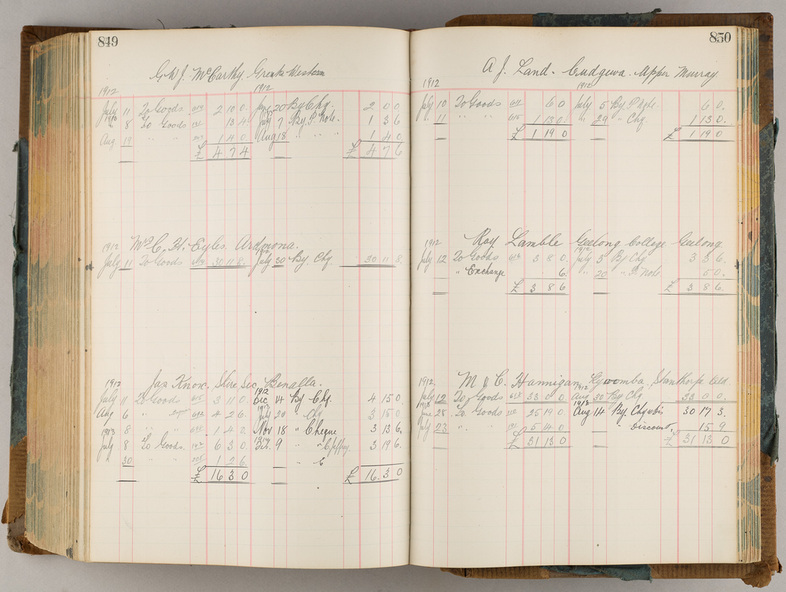 849
McCarthy Greater Western
1912 1912
July 11 To Goods 2 10 0 20 By Chq. 2 0 0
8 To Goods 13 4 7 By P. Note. 1 3 6
Aug 19 " " 1 4 0 Aug 18 " " " 1 4 0
£ 4 7 4 £ 4 7 6
1912 Mrs C. H. Eyles Ardmona.
July 11 To Goods 30 11 8 July 20 By Chq 30 11 8
1912 Jas Knox. Shire Sec. Benalla.
July 11 To Goods 3 11 0 Dec 14 By Chq 4 15 0
Aug 6 " 4 2 6 July 30 " Chq 3 15 0
1913 8 " " 1 4 2 Nov 18 " Cheque 3 13 6
July 8 To Goods 6 3 0 9 " 3 19 6
30 " " 1 2 6
£ 16 3 0 £ 16 3 0
850
A J. Land. Cudgewa. Upper Murray
1912 1912
July 10 To Goods 6 0 July 5 By P Note 6 0
11 " " " 1 13 0 " 29 " Chq 1 13 0
£ 1 19 0 £ 1 19 0
1912 Roy Lamble Geelong College Geelong
July 12 To Goods 3 8 0 July 5 By Chq 3 3 6
" Exchange 6 " 20 " P. Note 5 0
£ 3 8 6 £ 3 8 6
1912 M & C. Hannigan, Stanthorpe
July 12 To Goods 33 0 0 Aug By Chq 33 0 0
June 25 To Goods 25 19 0 Aug 14 By Chq 30 17 3
July 23 " 5 14 0 Discount 15 9
£ 31 13 0 £ 31 13 0